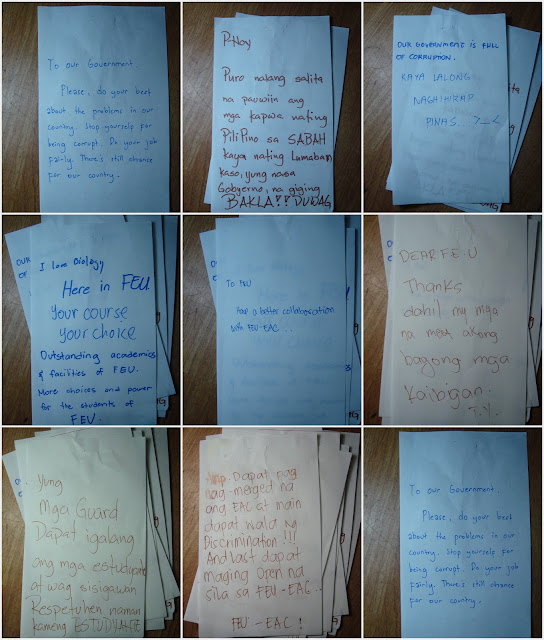 To our Government.
Please, do your best
about the problems in our
country. Stop yourself for
being corrupt. Do your job
fairly. There's still chance
for our country.
P-Noy
Puro nalang salita
na pauwiin ang
mga kapwa nating
PiliPino sa SABAH
kaya nating Lumaban
kaso, yung nasa
Gobyerno, na giging
BAKLA?? DUWAG
OUR GOVERNMENT IS FULL
OF CORRUPTION.
KAYA LALONG
NAGHIHIRAP
PINAS. >_<
I love Biology
Here in FEU
your course
your choice
Outstanding academics
& facilities of FEU.
More choices and power
for the students of
FEU.
To FEU
Have a better collaboration
with FEU-EAC...
DEAR FE-U
Thanks
dahil my mga
na meet akong
bagong mga
Kaibigan.
T.Y.
Yung
Mga Guard
Dapat igalang
ang mga estudyante
at wag sisigawan
Respetuhen naman
kameng ESTUDYANTE
Dapat pag
nag-merged na
ang EAC at main
dapat wala ng
Discrimination!!!
And last dapat
maging open na
sila sa FEU-EAC..
FEU-EAC!
To our Government.
Please, do your best
about the problems in our
country. Stop yourself for
being corrupt. Do your job
fairly. There's still chance
for our country.